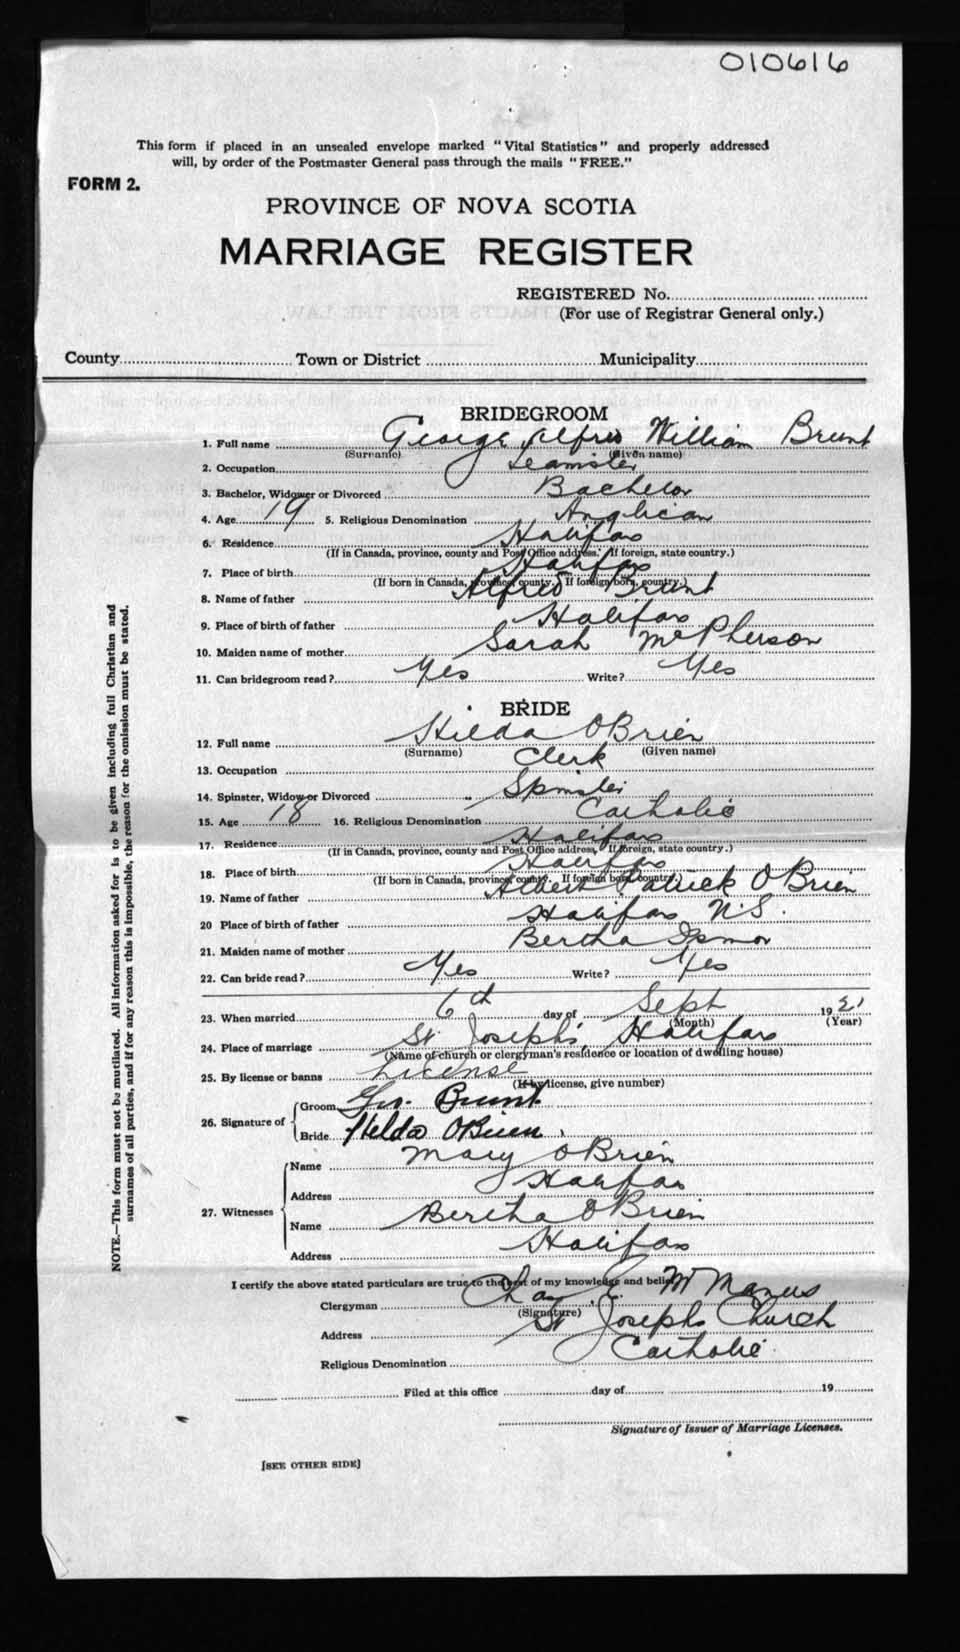 010616
This form if placed in an unsealed envelope marked "Vital Statistics" and properly addressed
will, by order of the Postmaster General pass through the mails "FREE."
FORM 2.
PROVINCE OF NOVA SCOTIA
MARRIAGE REGISTER
REGISTERED No.
(For use of Registrar General only.)
County Town or District Municipality
BRIDEGROOM
1. Full name George Alfred William Brunt
(Surname) (Given name)
2. Occupation Teamster
3. Bachelor, Widower or Divorced Bachelor
4. Age 19 5. Religious Denomination Anglican
6. Residence Halifax
(If in Canada, province, county and Post Office address. If foreign, state country.)
7. Place of birth Halifax
(If born in Canada, province, county. If foreign born, country.)
8. Name of father Alfred Brunt
9. Place of birth of father Halifax
10. Maiden name of mother Sarah McPherson
11. Can bridegroom read? Yes Write? Yes
BRIDE
12. Full name Hilda O'Brien
(Surname) (Given name)
13. Occupation Clerk
14. Spinster, Widow or Divorced Spinster
15. Age 18 16. Religious Denomination Catholic
17. Residence Halifax
(If in Canada, province, county and Post Office address. If foreign, state country.)
18. Place of birth Halifax
(If born in Canada, province, county. If foreign born, country.)
19. Name of father Albert Patrick O'Brien
20 Place of birth of father Halifax N.S.
21. Maiden name of mother Bertha
22. Can bride read? Yes Write? Yes
23. When married 6th day of Sept 1921
(Month) (Year)
24. Place of marriage St Joseph's, Halifax
(Name of church or clergyman's residence or location of dwelling house)
25. By license or banns License
(If by license, give number)
26. Signature of Groom Geo. Brunt
Bride Hilda O'Brien.
27. Witnesses Name Mary O'Brien
Address Halifax
Name Bertha O'Brien
Address Halifax
I certify the above stated particulars are true to the best of my knowledge and belief.
Clergyman Chas. E. McManus
(Signature)
Address St Josephs Church
Religious Denomination Catholic
Filed at this office day of 19
Signature of Issuer of Marriage Licenses.
[SEE OTHER SIDE]
NOTE.—This form must not be mutilated. All information asked for is to be given including full Christian and
surnames of all parties, and if for any reason this is impossible, the reason for the omission must be stated.